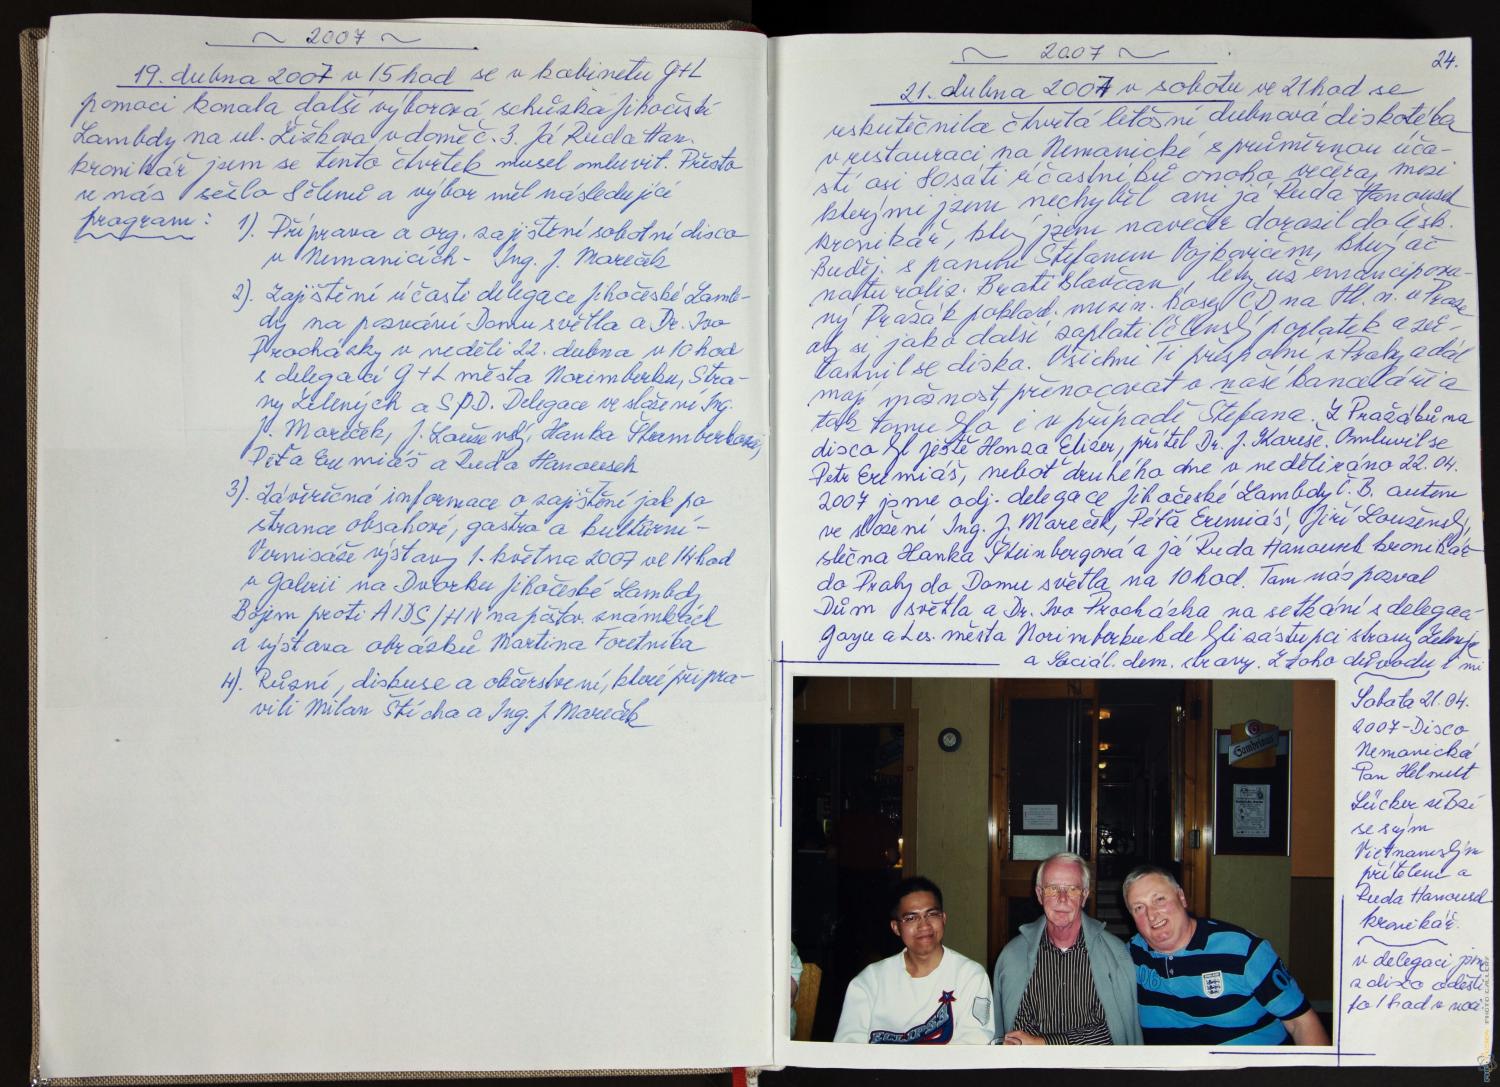 ~ 2007 ~
19. dubna 2007 v 15 hod se v kabinetu G+L
pomoci konala další výborová schůzka jihočeské
Lambdy na ul. Žižkova v domě č. 3. Já Ruda Han.
kronikář jsem se tento čtvrtek musel omluvit. Přesto
se nás sešlo 8 členů a výbor měl následující
program:
1). Příprava a org. zajištění sobotní disco
v Nemanicích - Ing. J. Mareček
2). Zajištění účasti delegace Jihočeské Lamb-
dy na pozvání Domu světla a Dr. Ivo
Procházky v neděli 22. dubna v 10 hod
s delegací G+L města Norimberku, Stra-
ny Zelených a SPD. Delegace ve složení Ing.
J. Mareček, J. Louženský, Hanka
Péťa Eremiáš a Ruda Hanousek
3). Závěrečná informace o zajištění jak po
stránce obsahové, gastro a kulturní -
Vernisáže výstavy 1. května 2007 ve 14 hod
v Galerii na Dvorku Jihočeské Lambdy
Bojem proti AIDS/HIV na poštov. známkách
a výstava obrázků Martina Foretníka
4). Různé, diskuse a občerstvení, které připra-
vili Milan Štícha a Ing. J. Mareček
~ 2007 ~
24.
21. dubna 2007 v sobotu ve 21 hod se
uskutečnila čtvrtá letošní dubnová diskotéka
v restauraci na Nemanické s průměrnou úča-
stí asi 80sáti účastníků onoho večera, mezi
kterými jsem nechyběl ani já Ruda Hanousek
kronikář, který jsem navečer dorazil do Česk.
Buděj. s panem Štefanem Vojkovičem, který ač
naturaliz. Bratislavčan, tedy už emancipova-
ný Pražák poklad. mezin. kasy ČD na Hl. n. v Praze
aby si jako další zaplatil členský poplatek a zúč-
astnil se diska. Všichni Ti přespolní z Prahy a dál
mají možnost přenocovat v naší kanceláři a
tak tomu bylo i v případě Štefana. Z Pražáků na
disco byl ještě Honza Elizer, přítel Dr. J. Kareše. Omluvil se
Petr Eremiáš, neboť druhého dne v neděli ráno 22.04.
2007 jsme odj. delegace Jihočeské Lambdy Č. B. autem
ve složení Ing. J. Mareček, Péťa Eremiáš, Jiří Louženský,
slečna Hanka Šteinbergová a já Ruda Hanousek kronikář
do Prahy do Domu světla na 10 hod. Tam nás pozval
Dům světla a Dr. Ivo Procházka na setkání s delegací
Gayů a Les. města Norimberku kde byli zástupci strany Zelených
a Sociál. dem. strany. Z toho důvodu i mi
Sobota 21.04.
2007 - Disco
Nemanická
Pan Helmut
Lücker
se svým
Vietnamským
přítelem a
Ruda Hanousek
kronikář.
v delegaci jsme
z disco odešli
po 1 hod v noci.
Gambrinus
ENGLAND
06
PHOTO GALLERY